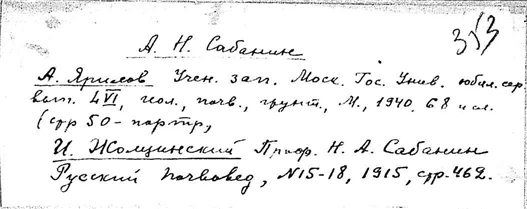 353
А. Н. Сабанин
А. Ярилов Учен. зап. Моск. Гос. Унив. юбил. сер.
вып. LVI, геол., почв., грунт., М., 1940. 68 и сл.
(стр 50 - портр,
И. Жолцинский Проф. Н. А. Сабанин
Русский почвовед, N15-18, 1915, стр. 462.